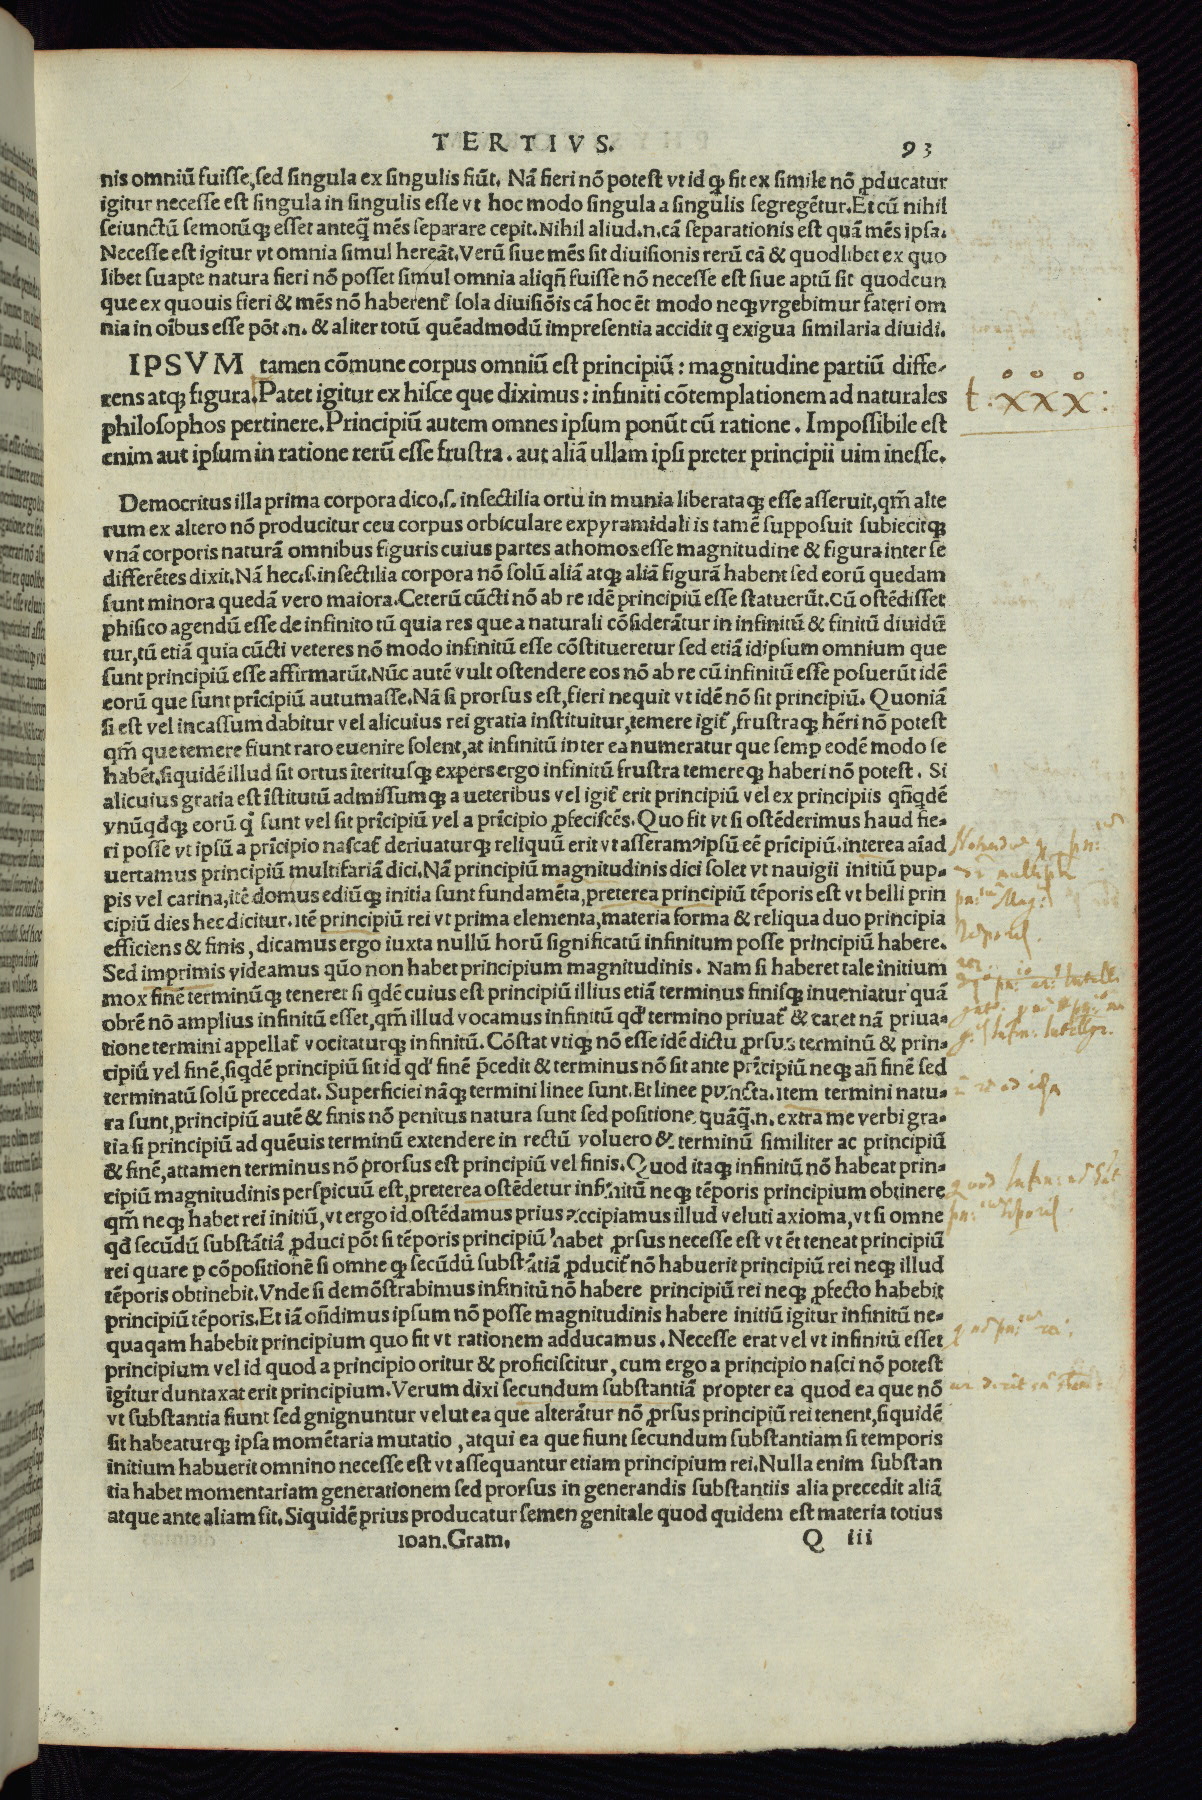 TERTIVS. 93
nis omniũ fuisse, sed singula ex singulis fiũt. Nã fieri nõ potest vt id qđ fit ex simile nõ ꝓducatur
igitur necesse est singula in singulis esse vt hoc modo singula a singulis segregẽtur. Et cũ nihil
seiunctũ semotũqꝫ esset anteq̃ mẽs separare cepit. Nihil aliud .n. cã separationis est quã mẽs ipsa.
Necesse est igitur vt omnia simul hereãt. Verũ siue mẽs sit diuisionis rerũ cã & quodlibet ex quo
libet suapte natura fieri nõ posset simul omnia aliqñ fuisse nõ necesse est siue aptũ sit quodcun
que ex quouis fieri & mẽs nõ haberent̃ sola diuisiõis cã hoc ẽt modo neqꝫ vrgebimur fateri om
nia in oĩbus esse põt .n. & aliter totũ quẽadmodũ impresentia accidit q exigua similaria diuidi.
IPSVM tamen cõmune corpus omniũ est principiũ : magnitudine partiũ diffe-
rens atqꝫ figura. Patet igitur ex hisce que diximus : infiniti cõtemplationem ad naturales
philosophos pertinere. Principiũ autem omnes ipsum ponũt cũ ratione. Impossibile est
enim aut ipsum in ratione rerũ esse frustra. aut aliã ullam ipsi preter principii uim inesse.
t. xxx :
Democritus illa prima corpora dico .s. insectilia ortu in munia liberataqꝫ esse asseruit, qm̃ alte
rum ex altero nõ producitur ceu corpus orbiculare expyramidali is tamẽ supposuit subiecitqꝫ
vnã corporis naturã omnibus figuris cuius partes athomos esse magnitudine & figura inter se
differẽtes dixit. Nã hec .s. insectilia corpora nõ solũ aliã atqꝫ aliã figurã habent sed eorũ quedam
sunt minora quedã vero maiora. Ceterũ cũcti nõ ab re idẽ principiũ esse statuerũt. Cũ ostẽdisset
phisico agendũ esse de infinito tũ quia res que a naturali cõsiderãtur in infinitũ & finitũ diuidũ
tur, tũ etiã quia cũcti veteres nõ modo infinitũ esse cõstitueretur sed etiã idipsum omnium que
sunt principiũ esse affirmarũt. Nũc autẽ vult ostendere eos nõ ab re cũ infinitũ esse posuerũt idẽ
eorũ que sunt prĩcipiũ autumasse. Nã si prorsus est, fieri nequit vt idẽ nõ sit principiũ. Quoniã
si est vel incassum dabitur vel alicuius rei gratia instituitur, temere igit̃, frustraqꝫ hẽri nõ potest
qm̃ que temere fiunt raro euenire solent, at infinitũ inter ea numeratur que semꝑ eodẽ modo se
habẽt. siquidẽ illud sit ortus ĩteritusqꝫ expers ergo infinitũ frustra temereqꝫ haberi nõ potest. Si
alicuius gratia est ĩstitutũ admissumqꝫ a ueteribus vel igit̃ erit principiũ vel ex principiis qñqdẽ
vnũqđqꝫ eorũ q̃ sunt vel sit prĩcipiũ vel a prĩcipio ꝓfeciscẽs. Quo fit vt si ostẽderimus haud fie-
ri posse vt ipsũ a prĩcipio nascat̃ deriuaturqꝫ reliquũ erit vt asseram⁹ ipsũ eẽ prĩcipiũ. interea aĩad
uertamus principiũ multifariã dici. Nã principiũ magnitudinis dici solet vt nauigii initiũ pup-
pis vel carina, itẽ domus ediũqꝫ initia sunt fundamẽta, preterea principiũ tẽporis est vt belli prin
cipiũ dies hec dicitur. Itẽ principiũ rei vt prima elementa, materia forma & reliqua duo principia
efficiens & finis, dicamus ergo iuxta nullũ horũ significatũ infinitum posse principiũ habere.
Sed imprimis videamus quõ non habet principium magnitudinis. Nam si haberet tale initium
mox finẽ terminũqꝫ teneret si qdẽ cuius est principiũ illius etiã terminus finisqꝫ inueniatur quã
obrẽ nõ amplius infinitũ esset, qm̃ illud vocamus infinitũ qđ termino priuat̃ & caret nã priua-
tione termini appellat̃ vocitaturqꝫ infinitũ. Cõstat vtiqꝫ nõ esse idẽ dictu ꝓrsus terminũ & prin-
cipiũ vel finẽ, siqdẽ principiũ sit id qđ finẽ p̃cedit & terminus nõ sit ante prĩcipiũ neqꝫ añ finẽ sed
terminatũ solũ precedat. Superficiei nãqꝫ termini linee sunt. Et linee puncta. Item termini natu-
ra sunt, principiũ autẽ & finis nõ penitus natura sunt sed positione, quãq̃ .n. extra me verbi gra-
tia si principiũ ad quẽuis terminũ extendere in rectũ voluero & terminũ similiter ac principiũ
& finẽ, attamen terminus nõ prorsus est principiũ vel finis. Quod itaqꝫ infinitũ nõ habeat prin-
cipiũ magnitudinis perspicuũ est, preterea ostẽdetur infinitũ neqꝫ tẽporis principium obtinere
qm̃ neqꝫ habet rei initiũ, vt ergo id ostẽdamus prius accipiamus illud veluti axioma, vt si omne
qđ secũdũ substãtiã ꝓduci põt si tẽporis principiũ habet ꝓrsus necesse est vt ẽt teneat principiũ
rei quare ꝑ cõpositionẽ si omne qꝫ secũdũ substãtiã ꝓducit̃ nõ habuerit principiũ rei neqꝫ illud
tẽporis obtinebit. Vnde si demõstrabimus infinitũ nõ habere principiũ rei neqꝫ ꝓfecto habebit
principiũ tẽporis. Et iã oñdimus ipsum nõ posse magnitudinis habere initiũ igitur infinitũ ne-
quaqam habebit principium quo fit vt rationem adducamus. Necesse erat vel vt infinitũ esset
principium vel id quod a principio oritur & proficiscitur, cum ergo a principio nasci nõ potest
igitur duntaxat erit principium. Verum dixi secundum substantiã propter ea quod ea que nõ
vt substantia fiunt sed gnignuntur velut ea que alterãtur nõ ꝓrsus principiũ rei tenent, siquidẽ
sit habeaturqꝫ ipsa momẽtaria mutatio, atqui ea que fiunt secundum substantiam si temporis
initium habuerit omnino necesse est vt assequantur etiam principium rei. Nulla enim substan
tia habet momentariam generationem sed prorsus in generandis substantiis alia precedit aliã
atque ante aliam fit. Siquidẽ prius producatur semen genitale quod quidem est materia totius
Ioan. Gram. Q iii